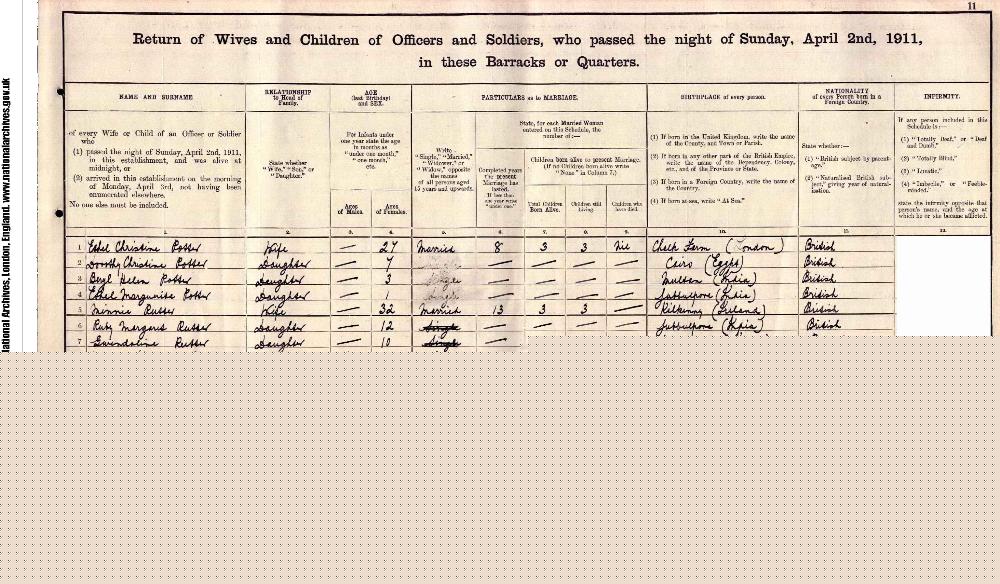 11
Return of Wives and Children of Officers and Soldiers, who passed the night of Sunday, April 2nd, 1911,
in these Barracks or Quarters.
NAME AND SURNAME
of every Wife or Child of an Officer or Soldier who
(1) passed the night of Sunday, April 2nd, 1911, in this establishment, and was alive at midnight, or
(2) arrived in this establishment on the morning of Monday, April 3rd, not having been enumerated elsewhere.
No one else must be included.
RELATIONSHIP to Head of Family.
State whether "Wife," "Son," or "Daughter."
AGE (last Birthday) and SEX.
For Infants under one year state the age in months as "under one month," "one month," etc.
Ages of Males.
Ages of Females.
PARTICULARS as to MARRIAGE.
Write "Single," "Married," "Widower," or "Widow," opposite the names of all persons aged 15 years and upwards.
State, for each Married Woman entered on this Schedule, the number of:—
Completed years the present Marriage has lasted. If less than one year write "under one."
Children born alive to present Marriage. (If no Children born alive write "None" in Column 7.)
Total Children Born Alive.
Children still Living.
Children who have died.
BIRTHPLACE of every person.
(1) If born in the United Kingdom, write the name of the County, and Town or Parish.
(2) If born in any other part of the British Empire, write the name of the Dependency, Colony, etc., and of the Province or State.
(3) If born in a Foreign Country, write the name of the Country.
(4) If born at sea, write "At Sea."
NATIONALITY of every Person born in a Foreign Country.
State whether:—
(1) "British subject by parentage."
(2) "Naturalised British subject," giving year of naturalisation.
INFIRMITY.
If any person included in this Schedule is:—
(1) "Totally Deaf," or "Deaf and Dumb,"
(2) "Totally Blind,"
(3) "Lunatic,"
(4) "Imbecile," or "Feeble-minded,"
state the infirmity opposite that person's name, and the age at which he or she became afflicted.
1. 2. 3. 4. 5. 6. 7. 8. 9. 10. 11. 12.
1 Ethel Christine Potter Wife — 27 Married 8 3 3 Nil Chalk Farm (London) British
2 Dorothy Christine Potter Daughter — 7 — — — — Cairo (Egypt) British
3 Beryl Helen Potter Daughter — 3 Single — — — — Multan (India) British
4 Ethel Marguerite Potter Daughter — 1 Single — — — — Jubbulpore (India) British
5 Minnie Rutter Wife — 32 Married 13 3 3 — Kilkenny (Ireland) British
6 Ruby Margaret Rutter Daughter — 12 Single — — — — Jubbulpore (India) British
7 Gwendoline Rutter Daughter — 10 Single —
National Archives, London, England. www.nationalarchives.gov.uk